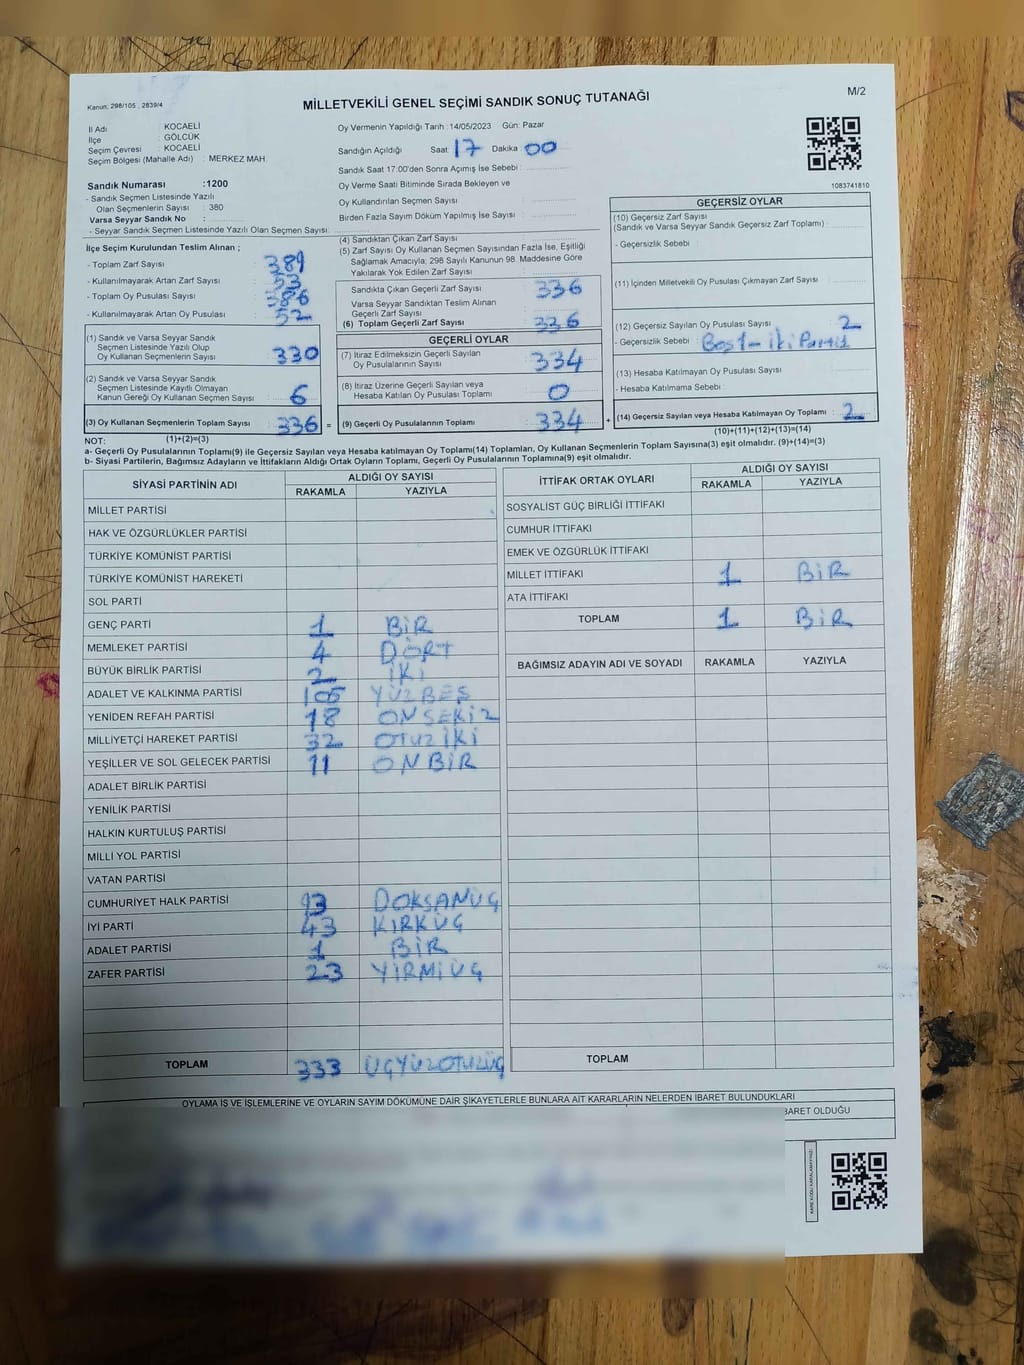 Kanun; 298/105 , 2839/4
MİLLETVEKİLİ GENEL SEÇİMİ SANDIK SONUÇ TUTANAĞI
M/2
İl Adı : KOCAELİ
İlçe : GÖLCÜK
Seçim Çevresi : KOCAELİ
Seçim Bölgesi (Mahalle Adı) : MERKEZ MAH.
Sandık Numarası :1200
- Sandık Seçmen Listesinde Yazılı
Olan Seçmenlerin Sayısı : 380
Varsa Seyyar Sandık No :
- Seyyar Sandık Seçmen Listesinde Yazılı Olan Seçmen Sayısı:
Oy Vermenin Yapıldığı Tarih :14/05/2023 Gün: Pazar
Sandığın Açıldığı Saat 17 Dakika : 00
Sandık Saat 17:00'den Sonra Açımış İse Sebebi :
Oy Verme Saati Bitiminde Sırada Bekleyen ve
Oy Kullandırılan Seçmen Sayısı :
Birden Fazla Sayım Döküm Yapılmış İse Sayısı :
1083741810
İlçe Seçim Kurulundan Teslim Alınan ;
- Toplam Zarf Sayısı : 389
- Kullanılmayarak Artan Zarf Sayısı : 53
- Toplam Oy Pusulası Sayısı : 386
- Kullanılmayarak Artan Oy Pusulası : 52
(1) Sandık ve Varsa Seyyar Sandık
Seçmen Listesinde Yazılı Olup
Oy Kullanan Seçmenlerin Sayısı : 330
(2) Sandık ve Varsa Seyyar Sandık
Seçmen Listesinde Kayıtlı Olmayan
Kanun Gereği Oy Kullanan Seçmen Sayısı : 6
(3) Oy Kullanan Seçmenlerin Toplam Sayısı : 336 =
(4) Sandıktan Çıkan Zarf Sayısı
(5) Zarf Sayısı Oy Kullanan Seçmen Sayısından Fazla İse, Eşitliği
Sağlamak Amacıyla, 298 Sayılı Kanunun 98. Maddesine Göre
Yakılarak Yok Edilen Zarf Sayısı :
Sandıkta Çıkan Geçerli Zarf Sayısı : 336
Varsa Seyyar Sandıktan Teslim Alınan
Geçerli Zarf Sayısı :
(6) Toplam Geçerli Zarf Sayısı : 336
GEÇERLİ OYLAR
(7) İtiraz Edilmeksizin Geçerli Sayılan
Oy Pusulalarının Sayısı : 334
(8) İtiraz Üzerine Geçerli Sayılan veya
Hesaba Katılan Oy Pusulası Toplamı : 0
(9) Geçerli Oy Pusulalarının Toplamı : 334 +
GEÇERSİZ OYLAR
(10) Geçersiz Zarf Sayısı
(Sandık ve Varsa Seyyar Sandık Geçersiz Zarf Toplamı) :
- Geçersizlik Sebebi :
(11) İçinden Milletvekili Oy Pusulası Çıkmayan Zarf Sayısı :
(12) Geçersiz Sayılan Oy Pusulası Sayısı : 2
- Geçersizlik Sebebi : Boş1-İki
(13) Hesaba Katılmayan Oy Pusulası Sayısı :
- Hesaba Katılmama Sebebi :
(14) Geçersiz Sayılan veya Hesaba Katılmayan Oy Toplamı : 2
(10)+(11)+(12)+(13)=(14)
NOT: (1)+(2)=(3)
a- Geçerli Oy Pusulalarının Toplamı(9) ile Geçersiz Sayılan veya Hesaba katılmayan Oy Toplamı(14) Toplamları, Oy Kullanan Seçmenlerin Toplam Sayısına(3) eşit olmalıdır. (9)+(14)=(3)
b- Siyasi Partilerin, Bağımsız Adayların ve İttifakların Aldığı Ortak Oyların Toplamı, Geçerli Oy Pusulalarının Toplamına(9) eşit olmalıdır.
SİYASİ PARTİNİN ADI ALDIĞI OY SAYISI
RAKAMLA YAZIYLA
MİLLET PARTİSİ
HAK VE ÖZGÜRLÜKLER PARTİSİ
TÜRKİYE KOMÜNİST PARTİSİ
TÜRKİYE KOMÜNİST HAREKETİ
SOL PARTİ
GENÇ PARTİ 1 BİR
MEMLEKET PARTİSİ 4 DÖRT
BÜYÜK BİRLİK PARTİSİ 2 İKİ
ADALET VE KALKINMA PARTİSİ 105 YÜZBEŞ
YENİDEN REFAH PARTİSİ 18 ONSEKİZ
MİLLİYETÇİ HAREKET PARTİSİ 32 OTUZİKİ
YEŞİLLER VE SOL GELECEK PARTİSİ 11 ONBİR
ADALET BİRLİK PARTİSİ
YENİLİK PARTİSİ
HALKIN KURTULUŞ PARTİSİ
MİLLİ YOL PARTİSİ
VATAN PARTİSİ
CUMHURİYET HALK PARTİSİ 93 DOKSANÜÇ
İYİ PARTİ 43 KIRKÜÇ
ADALET PARTİSİ 1 BİR
ZAFER PARTİSİ 23 YİRMİÜÇ
TOPLAM 333 ÜÇYÜZOTUZÜÇ
İTTİFAK ORTAK OYLARI ALDIĞI OY SAYISI
RAKAMLA YAZIYLA
SOSYALİST GÜÇ BİRLİĞİ İTTİFAKI
CUMHUR İTTİFAKI
EMEK VE ÖZGÜRLÜK İTTİFAKI
MİLLET İTTİFAKI 1 BİR
ATA İTTİFAKI
TOPLAM 1 BİR
BAĞIMSIZ ADAYIN ADI VE SOYADI RAKAMLA YAZIYLA
TOPLAM
OYLAMA İŞ VE İŞLEMLERİNE VE OYLARIN SAYIM DÖKÜMÜNE DAİR ŞİKAYETLERLE BUNLARA AİT KARARLARIN NELERDEN İBARET BULUNDUKLARI
BARET OLDUĞU
KARE KODU KARALAMAYINIZ!